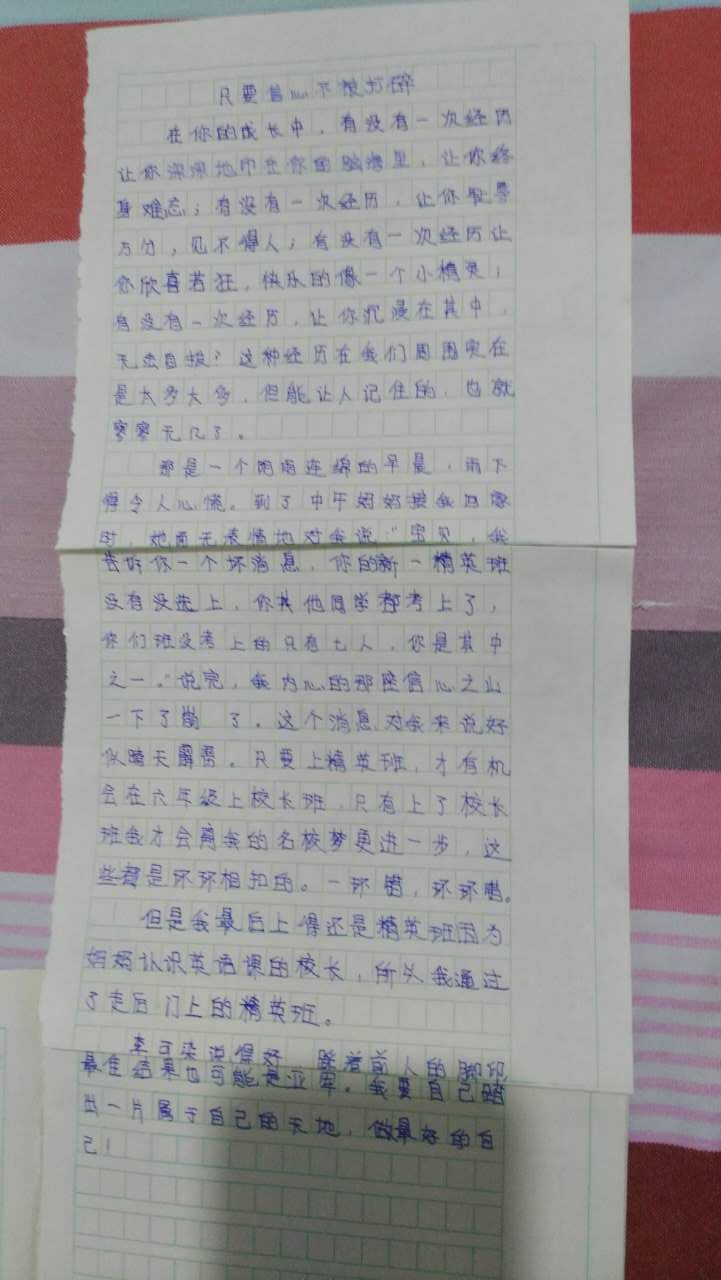 只要信心不被打碎
在你的成长中，有没有一次经历
让你深深地印在你的脑海里，让你终
身难忘；有没有一次经历，让你耻辱
万分，见不得人；有没有一次经历让
你欣喜若狂，快乐的像一个小精灵；
有没有一次经历，让你沉浸在其中，
无法自拔？这种经历在我们周围实在
是太多太多，但能让人记住的，也就
寥寥无几了。
那是一个阴雨连绵的早晨，雨下
得令人心慌。到了中午妈妈接我回家
时，她面无表情地对我说“宝贝，我
告诉你一个坏消息，你的新一精英班
没有没选上，你其他同学都考上了，
你们班没考上的只有七人，你是其中
之一。”说完，我内心的那座信心之山
一下了崩 了。这个消息对我来说好
似晴天霹雳。只要上精英班，才有机
会在六年级上校长班，只有上了校长
班我才会离我的名校梦更进一步，这
些都是环环相扣的。一环错，环环错。
但是我最后上得还是精英班因为
妈妈认识英语课的校长，所以我通过
了走后门上的精英班。
李可染说得好 踩着前人的脚印
最佳结果也可能是亚军。我要自己踏
出一片属于自己的天地，做最好的自
己！